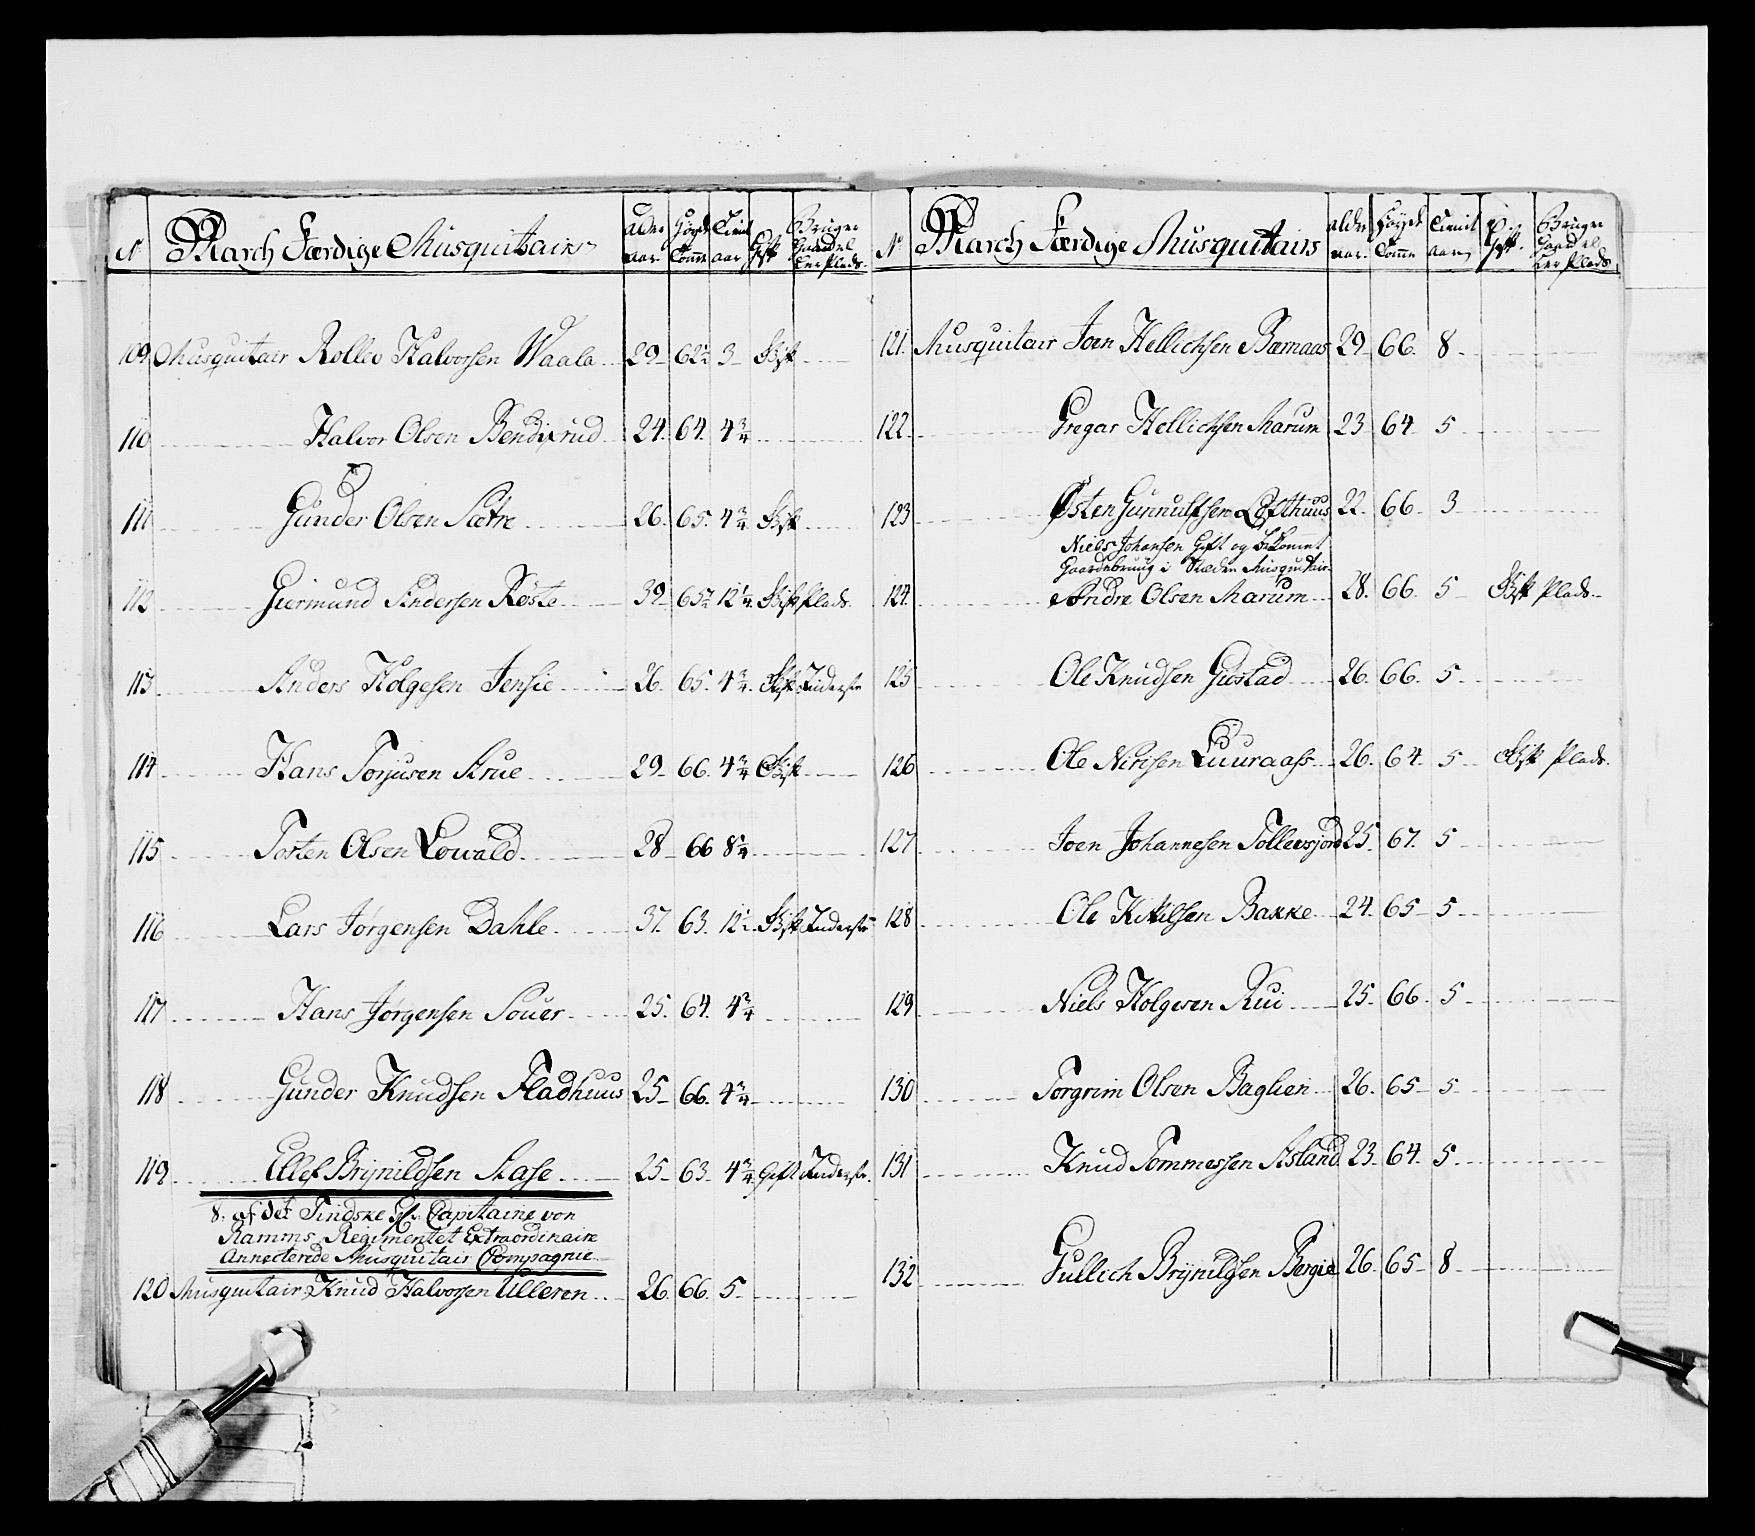 N° March Færdige Musquitairs Alder aar. Høyde Tomme Tient aar Gift Bruger Gaard el ler Plads.
109. Musquitair Rollev Halvorsen Waala 29 62½ 3 Gift
110 Halvor Olsen Bendixrud 24. 64. 4¾
111 Gunder Olsen Sætre 26. 65. 4¾ Gift
112 Giermund Andersen Røste 39 65½ 12¼ Gift Plads.
113 Anders Holgesen Jensie 26. 65. 4¾ Gift Inderste
114 Hans Torjusen Krue 29 66. 4¾ Gift
115 Tosten Olsen Lowald 28 66 8¼
116 Lars Jørgensen Dahle 37. 63. 12½ Gift Inderste
117 Hans Jørgensen Souer 25. 64. 4¾
118 Gunder Knudsen Fladhuus 25 66. 4¾
119 Ellef Brynildsen Aase 25 63 4¾ Gift Inderste.
8. af det Tindske Capitaine von
Ramms Regimentet Extraordinaire
Annecterede Musquitair Compagnie
120 Musquitair Knud Halvorsen Ulleren 26. 66. 5
N° March Færdige Musquitairs alder aar. Høyde Tomme Tient aar Gift. Bruger Gaard el ler Plads
121. Musquitair Joen Hellichsen Bemaas 29 66. 8
122 Gregar Hellichsen Marum 23 64 5
123 Østen Gunnulfsen Lofthuus 22. 66 3
Niels Johansen Gift og bekommet
Gaardebruug i Stæden Musquitair
124. Andre Olsen Marum 28. 66. 5 Gift Plads.
125 Ole Knudsen Giestad 26. 66. 5
126 Ole Nirisen Luuraass 26. 64. 5 Gift Plads.
127 Joen Johannesen Tollevsjord 25. 67. 5
128 Ole Kittilsen Bakke 24. 65 5
129 Niels Holgesen Rui 25. 66. 5
130 Torgrim Olsen Baglien 26. 65 5
131 Knud Tommessen Asland 23. 64. 5
132 Gullich Brynildsen Bergie 26. 65 8